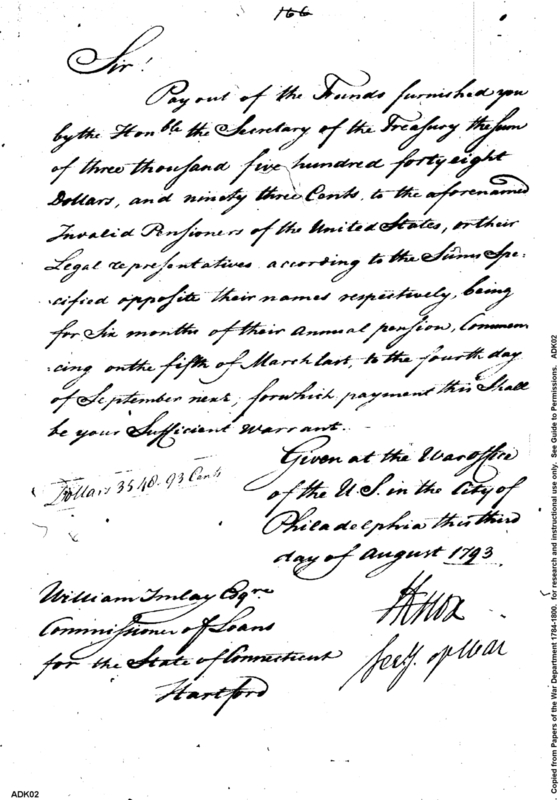 166
Sir!
Pay out of the Funds furnished you
by the Honble the Secretary of the Treasury the Sum
of three thousand five hundred forty eight
Dollars, and ninety three Cents, to the aforenamed
Invalid Pensioners of the United States, or their
Legal representatives according to the Sums Spe-
cified opposite their names respectively, being
for Six months of their Annual pension, Commen
cing on the fifth of March last, to the fourth day
of September next, for which payment this Shall
be your Sufficient Warrant.
Dollars 3548.93 Cents
Given at the War Office
of the U.S. in the City of
Philadelphia this third
day of August 1793
William Imlay Esqre
Commissioner of Loans
for the State of Connecticut
Hartford
HKnox
Secy. of War
ADK02
Copied from Papers of the War Department 1784-1800, for research and instructional use only. See Guide to Permissions. ADK02